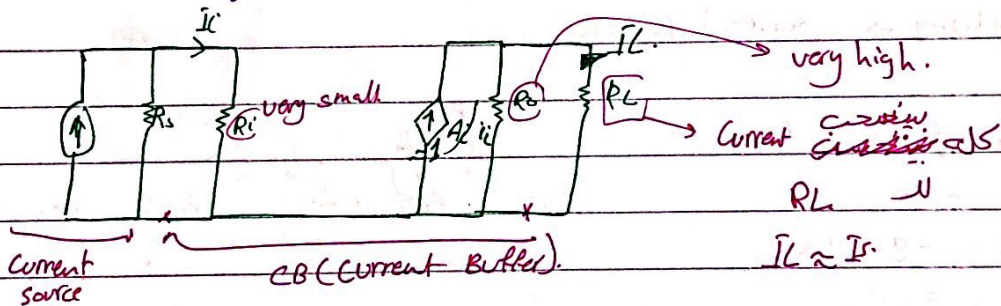 Ii
IL.
very high.
Rs
Ri
very small
Ai ii
1
Ro
RL
Current
كله
RL
لل
Current
source
CB (Current Buffer).
IL ≈ Is.